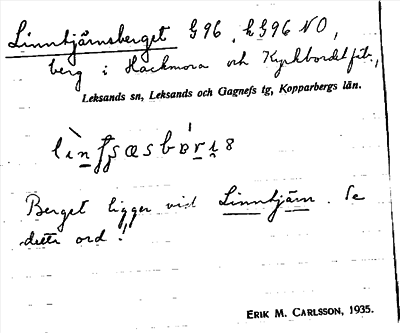 Linntjärnsberget G96, h G96 NO,
berg i Hackmora och Kyrkbordet fäb.,
Leksands sn, Leksands och Gagnefs tg, Kopparbergs län.
Berget ligger vid Linntjärn. Se
detta ord!
ERIK M. CARLSSON, 1935.